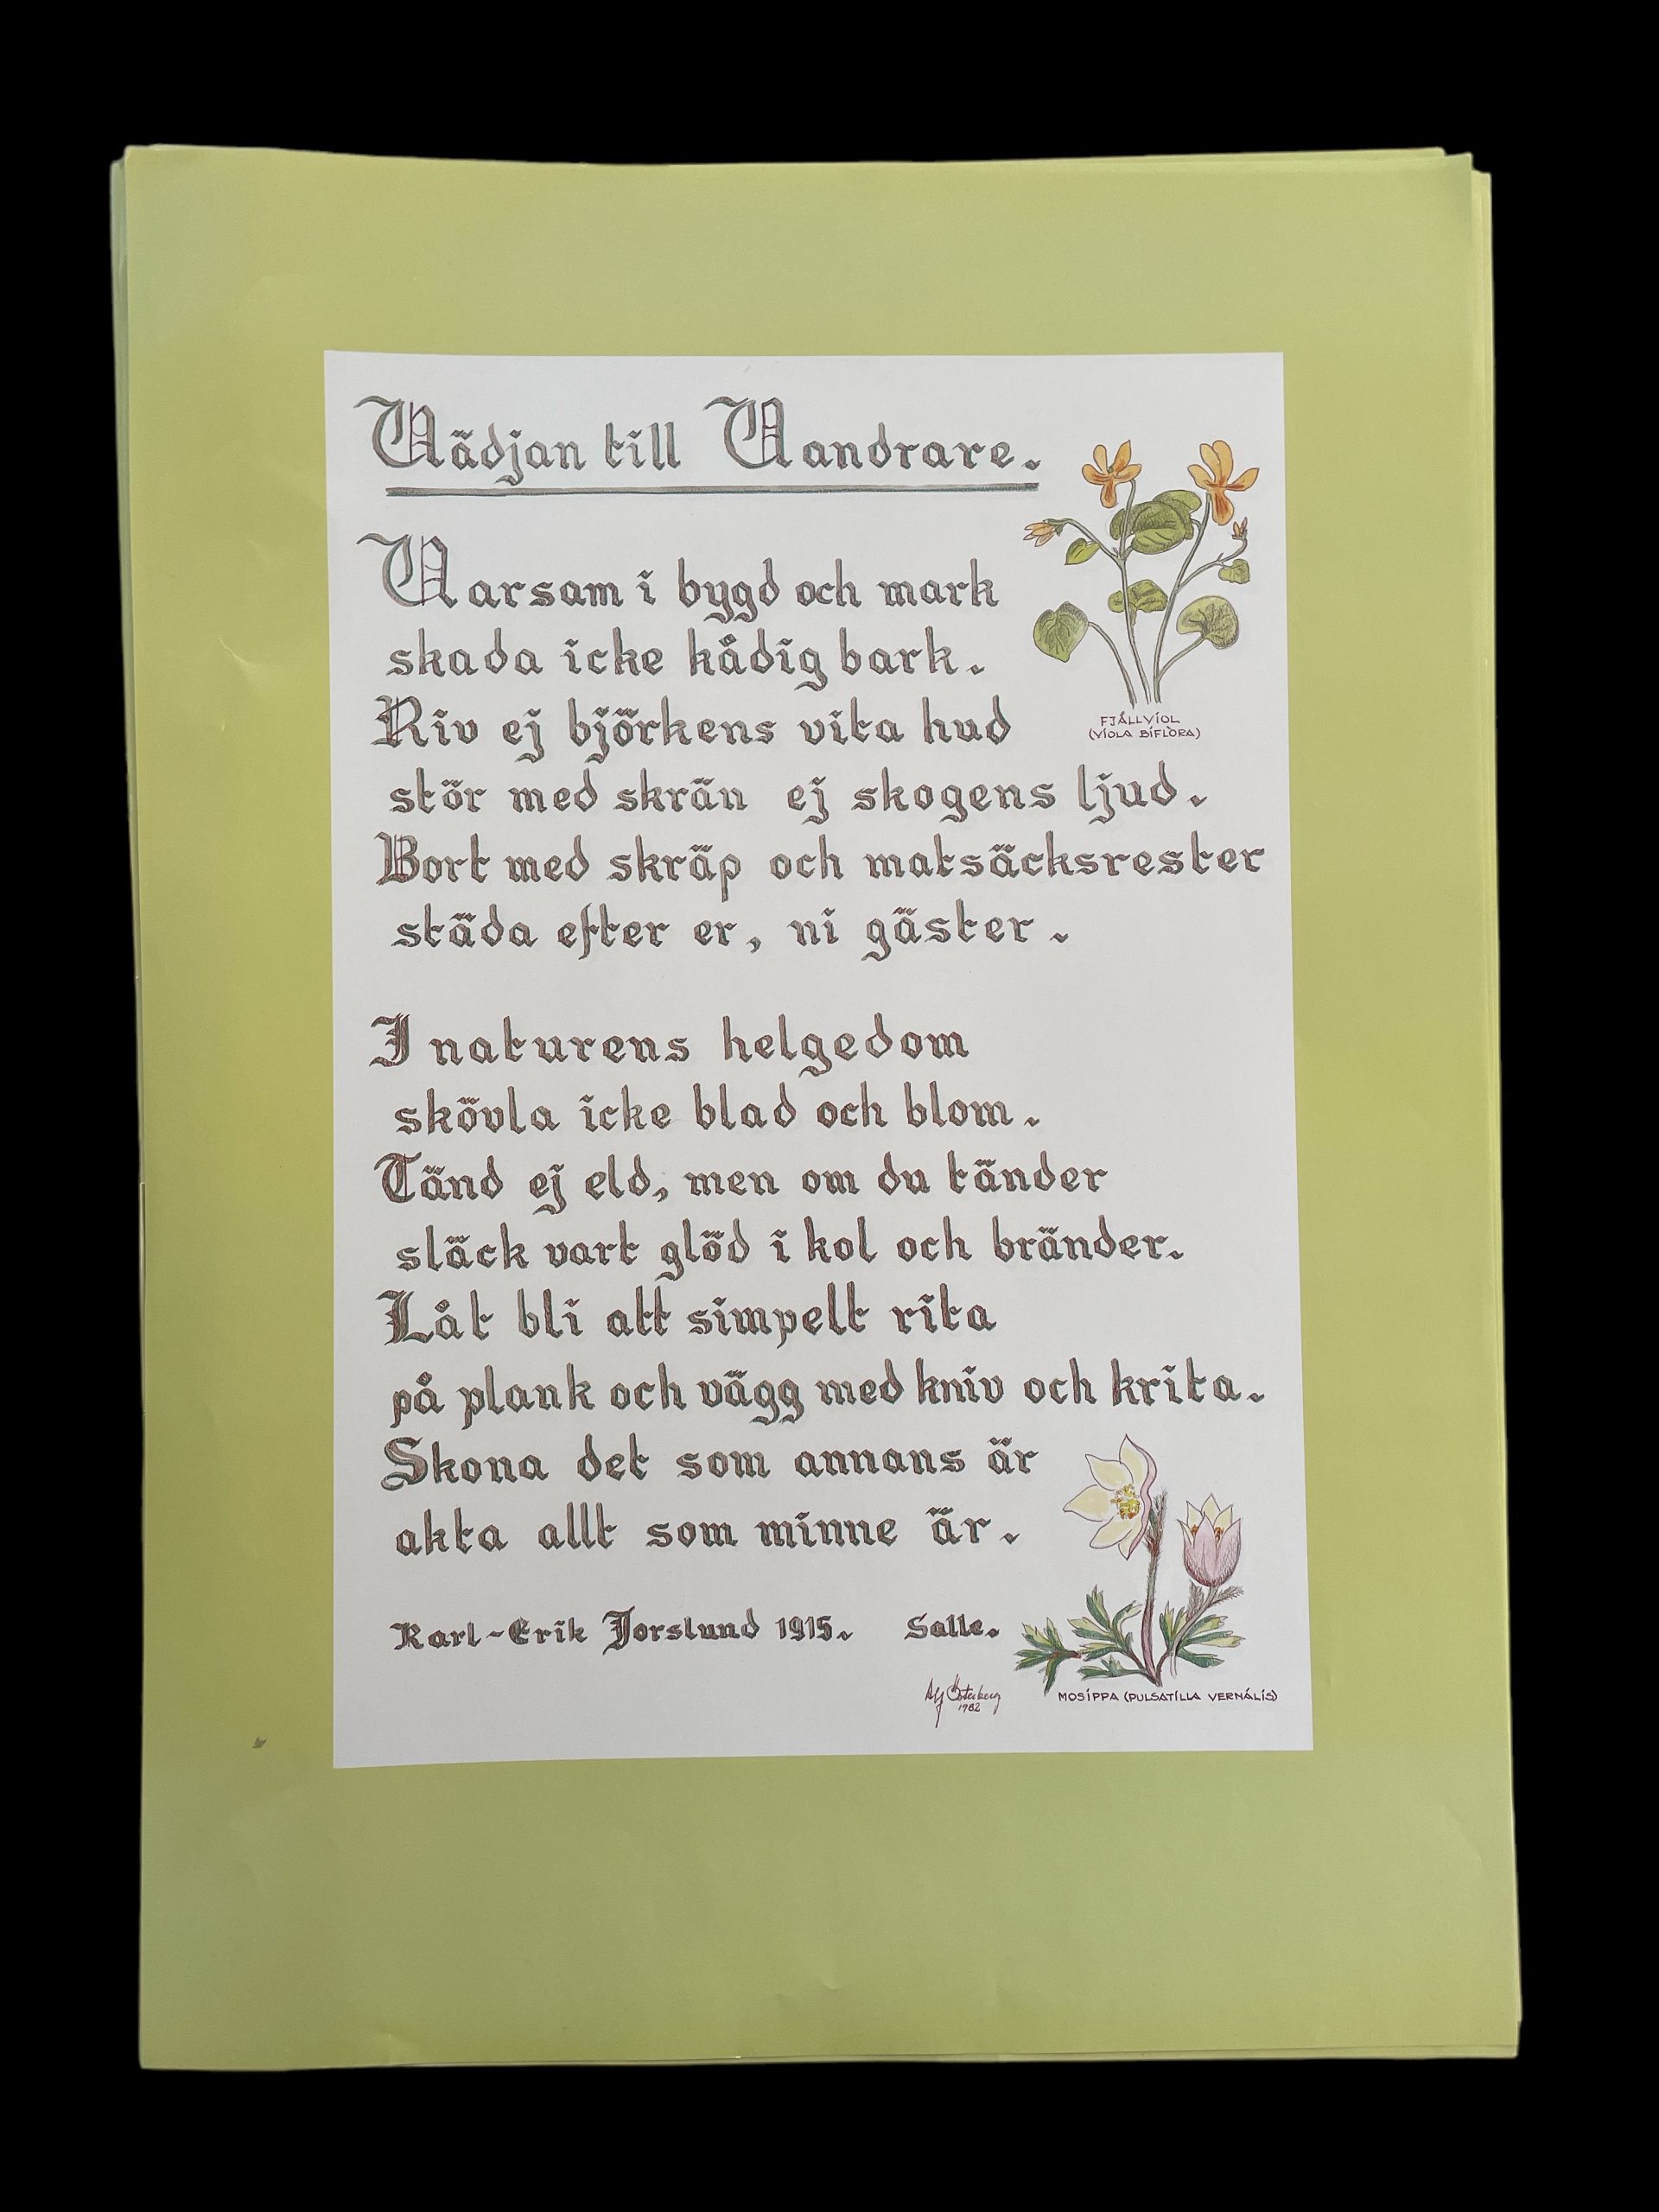 Vädjan till Vandrare.
Varsam i bygd och mark
skada icke kådig bark.
Riv ej björkens vita hud
stör med skrän ej skogens ljud.
Bort med skräp och matsäcksrester
städa efter er, ni gäster.
I naturens helgedom
skövla icke blad och blom.
Tänd ej eld, men om du tänder
släck vart glöd i kol och bränder.
Låt bli att simpelt rita
på plank och vägg med kniv och krita.
Skona det som annans är
akta allt som minne är.
Karl-Erik Forslund 1915. Salle.
FJÄLLVIOL
(VIOLA BIFLORA)
Alf Österberg
1982
MOSIPPA (PULSATILLA VERNALIS)